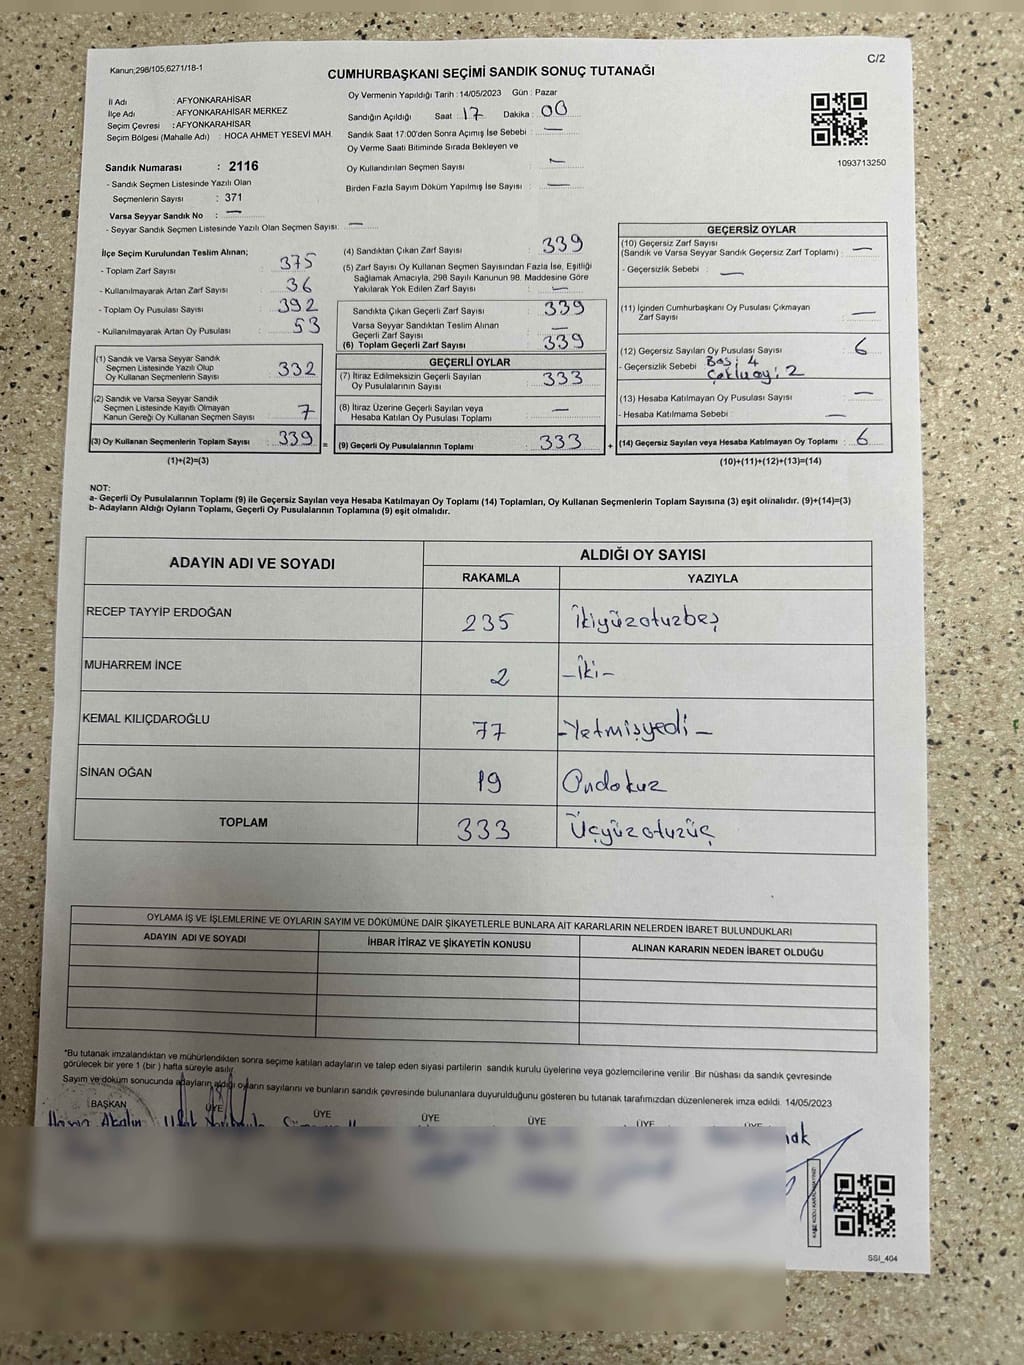 Kanun;298/105,6271/18-1
C/2
CUMHURBAŞKANI SEÇİMİ SANDIK SONUÇ TUTANAĞI
İl Adı : AFYONKARAHİSAR
İlçe Adı : AFYONKARAHİSAR MERKEZ
Seçim Çevresi : AFYONKARAHİSAR
Seçim Bölgesi (Mahalle Adı) : HOCA AHMET YESEVİ MAH.
Sandık Numarası : 2116
- Sandık Seçmen Listesinde Yazılı Olan
Seçmenlerin Sayısı : 371
Varsa Seyyar Sandık No : —
- Seyyar Sandık Seçmen Listesinde Yazılı Olan Seçmen Sayısı: —
Oy Vermenin Yapıldığı Tarih : 14/05/2023 Gün : Pazar
Sandığın Açıldığı Saat : 17 Dakika : 00
Sandık Saat 17:00'den Sonra Açımış İse Sebebi : —
Oy Verme Saati Bitiminde Sırada Bekleyen ve
Oy Kullandırılan Seçmen Sayısı : —
Birden Fazla Sayım Döküm Yapılmış İse Sayısı : —
1093713250
İlçe Seçim Kurulundan Teslim Alınan;
- Toplam Zarf Sayısı : 375
- Kullanılmayarak Artan Zarf Sayısı : 36
- Toplam Oy Pusulası : 392
- Kullanılmayarak Artan Oy Pusulası : 53
(1) Sandık ve Varsa Seyyar Sandık
Seçmen Listesinde Yazılı Olup
Oy Kullanan Seçmenlerin Sayısı : 332
(2) Sandık ve Varsa Seyyar Sandık
Seçmen Listesinde Kayıtlı Olmayan
Kanun Gereği Oy Kullanan Seçmen Sayısı : 7
(3) Oy Kullanan Seçmenlerin Toplam Sayısı : 339 =
(1)+(2)=(3)
(4) Sandıktan Çıkan Zarf Sayısı : 339
(5) Zarf Sayısı Oy Kullanan Seçmen Sayısından Fazla İse, Eşitliği
Sağlamak Amacıyla, 298 Sayılı Kanunun 98. Maddesine Göre
Yakılarak Yok Edilen Zarf Sayısı : —
Sandıkta Çıkan Geçerli Zarf Sayısı : 339
Varsa Seyyar Sandıktan Teslim Alınan
Geçerli Zarf Sayısı : —
(6) Toplam Geçerli Zarf Sayısı : 339
GEÇERLİ OYLAR
(7) İtiraz Edilmeksizin Geçerli Sayılan
Oy Pusulalarının Sayısı : 333
(8) İtiraz Üzerine Geçerli Sayılan veya
Hesaba Katılan Oy Pusulası Toplamı : —
(9) Geçerli Oy Pusulalarının Toplamı : 333 +
GEÇERSİZ OYLAR
(10) Geçersiz Zarf Sayısı
(Sandık ve Varsa Seyyar Sandık Geçersiz Zarf Toplamı) : —
- Geçersizlik Sebebi : —
(11) İçinden Cumhurbaşkanı Oy Pusulası Çıkmayan
Zarf Sayısı : —
(12) Geçersiz Sayılan Oy Pusulası Sayısı : 6
- Geçersizlik Sebebi : Boş: 4
Çokluoy: 2
(13) Hesaba Katılmayan Oy Pusulası Sayısı : —
- Hesaba Katılmama Sebebi : —
(14) Geçersiz Sayılan veya Hesaba Katılmayan Oy Toplamı : 6
(10)+(11)+(12)+(13)=(14)
NOT:
a- Geçerli Oy Pusulalarının Toplamı (9) ile Geçersiz Sayılan veya Hesaba Katılmayan Oy Toplamı (14) Toplamları, Oy Kullanan Seçmenlerin Toplam Sayısına (3) eşit olmalıdır. (9)+(14)=(3)
b- Adayların Aldığı Oyların Toplamı, Geçerli Oy Pusulalarının Toplamına (9) eşit olmalıdır.
ADAYIN ADI VE SOYADI
ALDIĞI OY SAYISI
RAKAMLA YAZIYLA
RECEP TAYYİP ERDOĞAN 235 İkiyüzotuzbeş
MUHARREM İNCE 2 -İki-
KEMAL KILIÇDAROĞLU 77 -Yetmişyedi-
SİNAN OĞAN 19 Ondokuz
TOPLAM 333 Üçyüzotuzüç
OYLAMA İŞ VE İŞLEMLERİNE VE OYLARIN SAYIM VE DÖKÜMÜNE DAİR ŞİKAYETLERLE BUNLARA AİT KARARLARIN NELERDEN İBARET BULUNDUKLARI
ADAYIN ADI VE SOYADI İHBAR İTİRAZ VE ŞİKAYETİN KONUSU ALINAN KARARIN NEDEN İBARET OLDUĞU
"Bu tutanak imzalandıktan ve mühürlendikten sonra seçime katılan adayların ve talep eden siyasi partilerin sandık kurulu üyelerine veya gözlemcilerine verilir. Bir nüshası da sandık çevresinde
görülecek bir yere 1 (bir) hafta süreyle asılır.
Sayım ve döküm sonucunda adayların aldığı oyların sayılarını ve bunların sandık çevresinde bulunanlara duyurulduğunu gösteren bu tutanak tarafımızdan düzenlenerek imza edildi. 14/05/2023
BAŞKAN ÜYE ÜYE ÜYE ÜYE ÜYE ÜYE
SSI_404